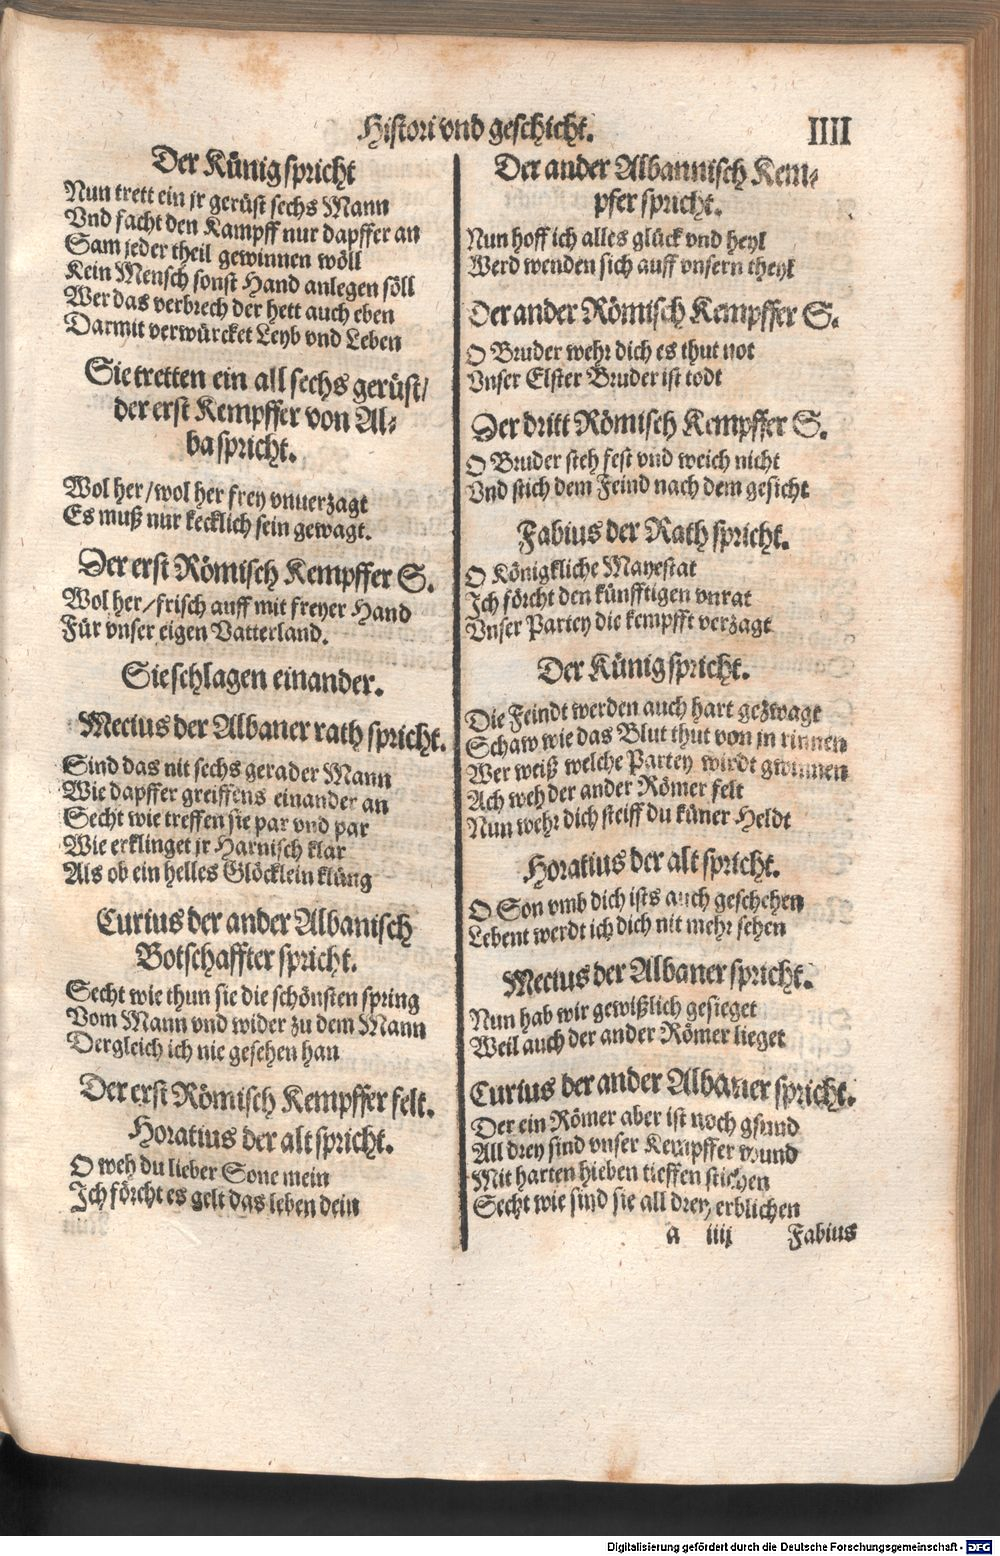 Histori vnd geschicht.
IIII
Der Künig spricht
Nun trett ein jr gerüst sechs Mann
Vnd facht den Kampff nur dapffer an
Sam jeder theil gewinnen wöll
Kein Mensch sonst Hand anlegen söll
Wer das verbrech der hett auch eben
Darmit verwürcket Leyb vnd Leben
Sie tretten ein all sechs gerüst/
der erst Kempffer von Al⸗
ba spricht.
Wol her/wol her frey vnuerzagt
Es muß nur kecklich sein gewagt.
Der erst Römisch Kempffer S.
Wol her/frisch auff mit freyer Hand
Für vnser eigen Vatterland.
Sie schlagen einander.
Mecius der Albaner rath spricht.
Sind das nit sechs gerader Mann
Wie dapffer greiffens einander an
Secht wie treffen sie par vnd par
Wie erklinget jr Harnisch klar
Als ob ein helles Glöcklein klüng
Curius der ander Albanisch
Botschaffter spricht.
Secht wie thun sie die schönsten spring
Vom Mann vnd wider zu dem Mann
Dergleich ich nie gesehen han
Der erst Römisch Kempffer felt.
Horatius der alt spricht.
O weh du lieber Sone mein
Ich förcht es gelt das leben dein
Der ander Albannisch Kem⸗
pfer spricht.
Nun hoff ich alles glück vnd heyl
Werd wenden sich auff vnsern theyl
Der ander Römisch Kempffer S.
O Bruder wehr dich es thut not
Vnser Elster Bruder ist todt
Der dritt Römisch Kempffer S.
O Bruder steh fest vnd weich nicht
Vnd stich dem Feind nach dem gesicht
Fabius der Rath spricht.
O Königkliche Mayestat
Ich förcht den künfftigen vnrat
Vnser Partey die kempfft verzagt
Der Künig spricht.
Die Feindt werden auch hart gezwagt
Schaw wie das Blut thut von jn rinnen
Wer weiß welche Partey wirdt gwinnen
Ach weh der ander Römer felt
Nun wehr dich steiff du küner Heldt
Horatius der alt spricht.
O Son vmb dich ists auch geschehen
Lebent werdt ich dich nit mehr sehen
Mecius der Albaner spricht.
Nun hab wir gewißlich gesieget
Weil auch der ander Römer lieget
Curius der ander Albaner spricht.
Der ein Römer aber ist noch gsund
All drey sind vnser Kempffer wund
Mit harten hieben tieffen stichen
Secht wie sind sie all drey erblichen
a iiij Fabius
Digitalisierung gefördert durch die Deutsche Forschungsgemeinschaft - DFG